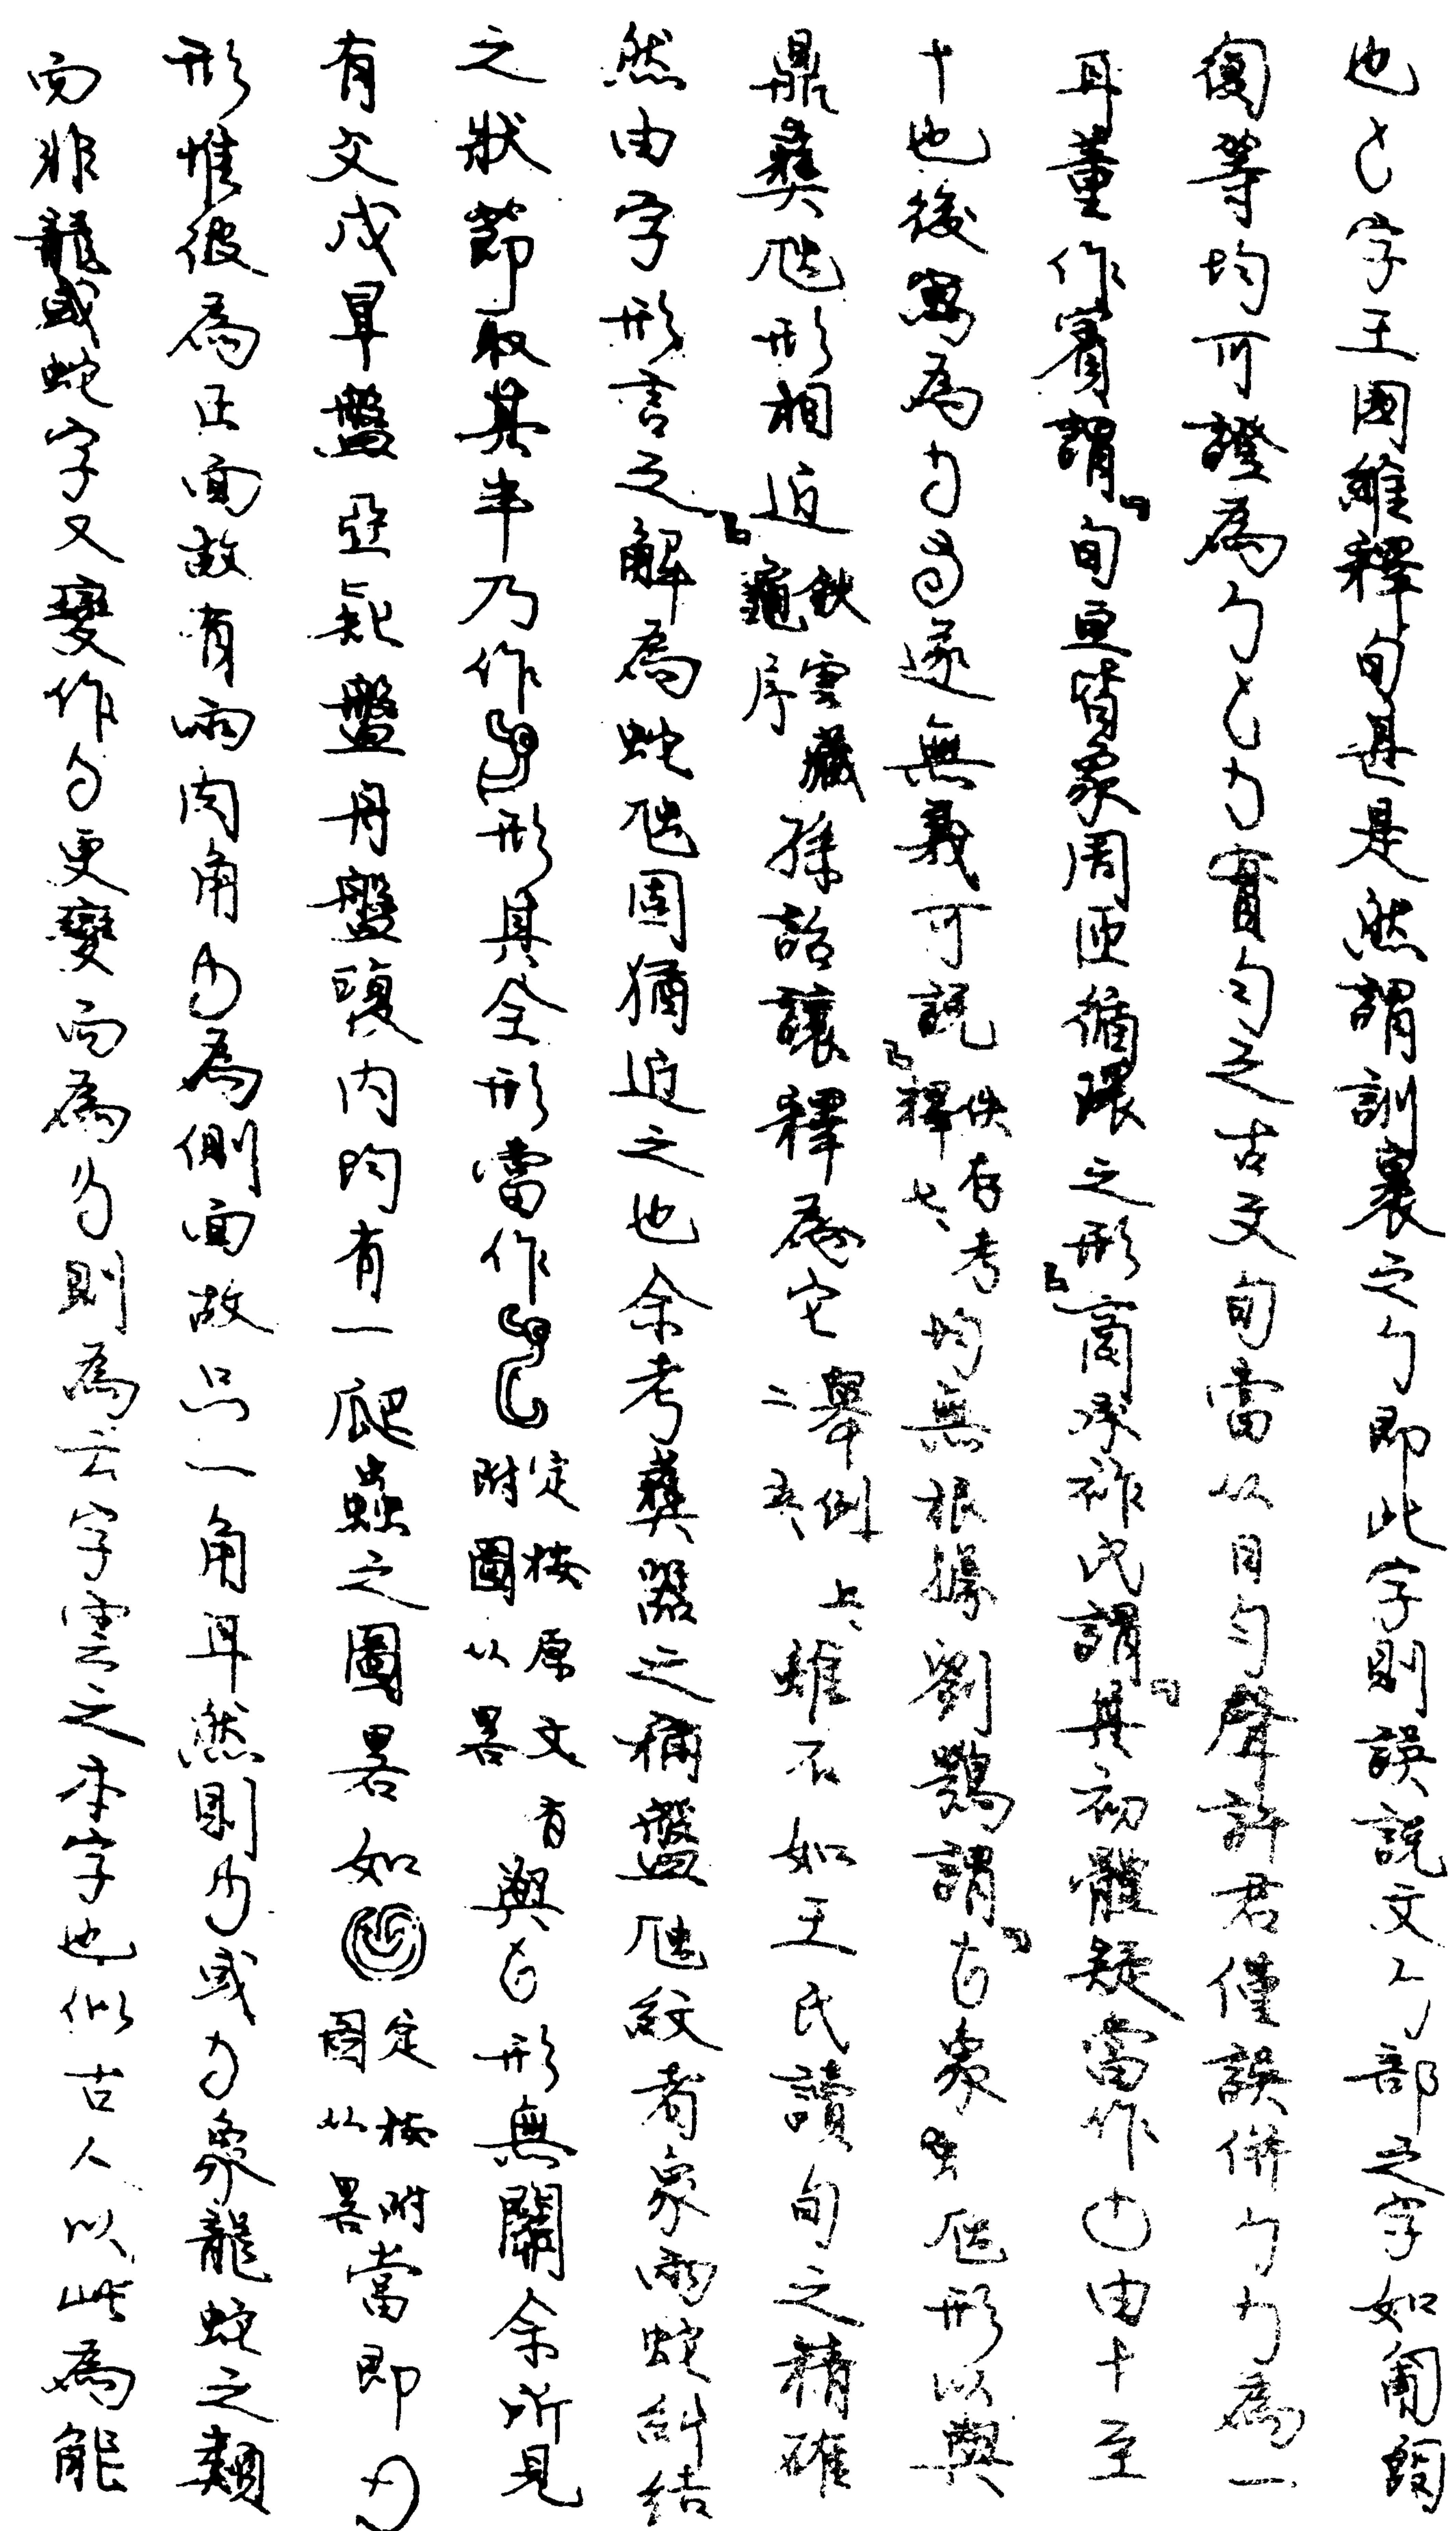 也字王國維釋旬甚是然謂訓裹之勹即此字則誤說文勹部之字如匍匐
匎等均可證為勹實勻之古文旬當从日勻聲許君僅誤併勹為一
耳董作賓謂「旬亘皆象周匝循環之形」商承祚氏謂「其初體疑當作由十至
十也後寫為遂無義可說」佚存考釋七、均無根據劉鶚謂「象虫虺形以與
鼎彝虺形相近」鉄雲藏龜序孫詒讓釋為它舉例上、二五、雖不如王氏讀旬之精確
然由字形言之解為蛇虺固猶近之也余考彝器之稱盤虺紋者象兩蛇糾結
之狀節取其半乃作形其全形當作定按原文有附圖以畧與形無關余所見
有父戊㫗盤亞㠱盤舟盤腹內均有一爬蟲之圖畧如定按附圖以畧當即
形惟彼為正面故有兩肉角為側面故只一角耳然則或象龍蛇之類
而非龍或蛇字又變作更變而為則為云字雲之本字也似古人以此為能